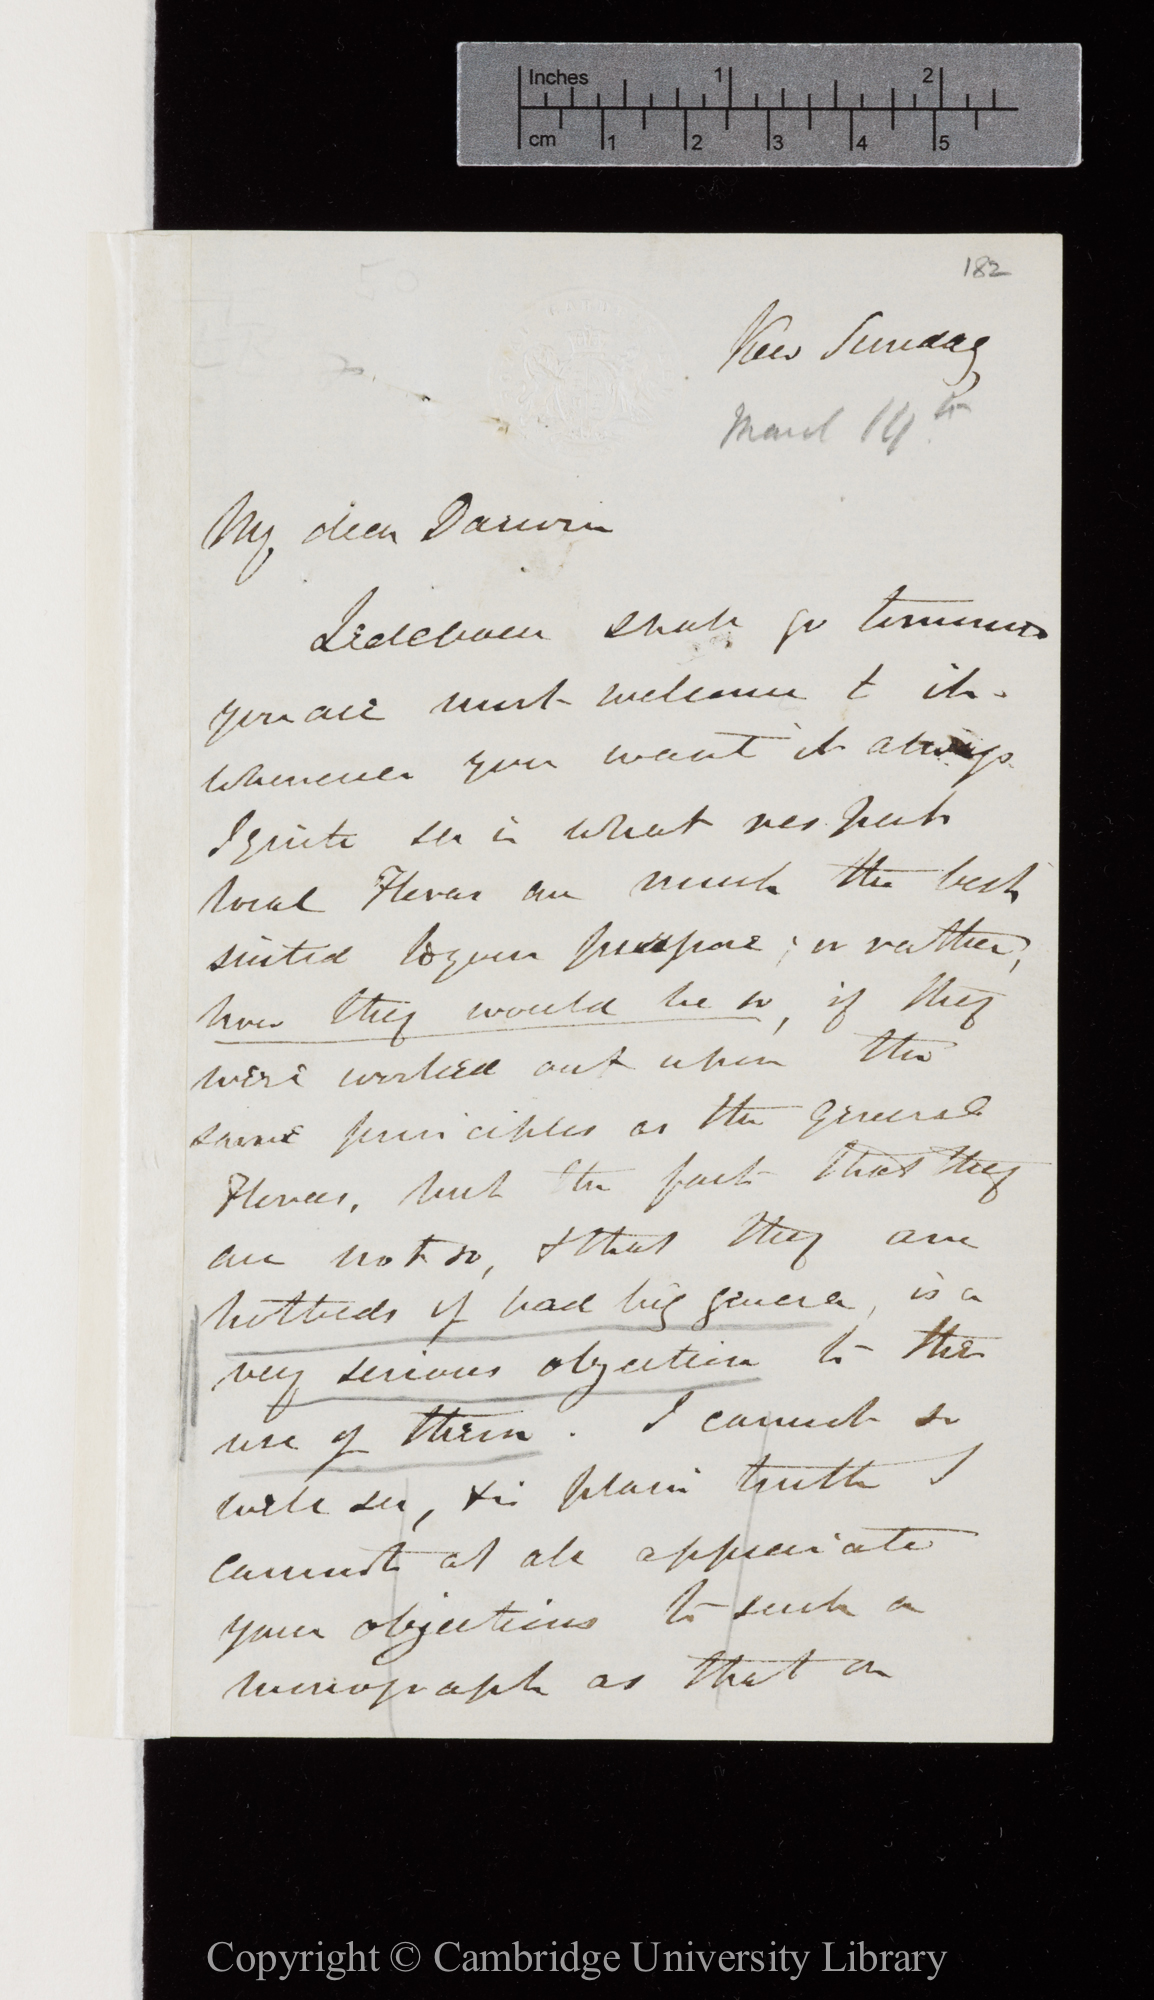 Inches 1 2
cm 1 2 3 4 5
182
Kew Sunday
March 14th
My dear Darwin
Ledebour shall go tomorrow
you are most welcome to it.
whenever you want it always
I quite see in what respects
local Floras are much the best
suited to your purpose; or rather,
how they would be so, if they
were worked out upon the
same principles as the general
Floras, but the fact that they
are not so, & that they are
hotbeds of bad big genera, is a
very serious objection to the
use of them. I cannot so
well see, & in plain truth I
cannot at all appreciate
your objections to such a
monograph as that on
Copyright © Cambridge University Library